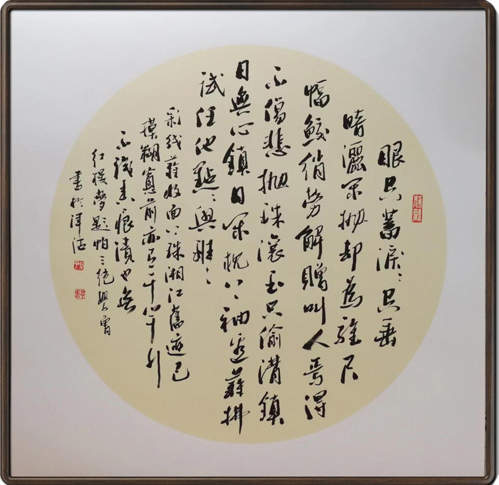 眼空蓄淚〻空垂
暗灑閑抛却為誰尺
幅鮫綃勞解贈叫人焉得
不傷悲抛珠滾玉只偷潸鎮
日無心鎮日閑枕上袖邊難拂
拭任他點〻與斑〻
彩线難收面上珠湘江舊迹已
模糊窗前亦有千竿竹
不識香痕漬也無
紅樓夢題帕三絕
書於津沽